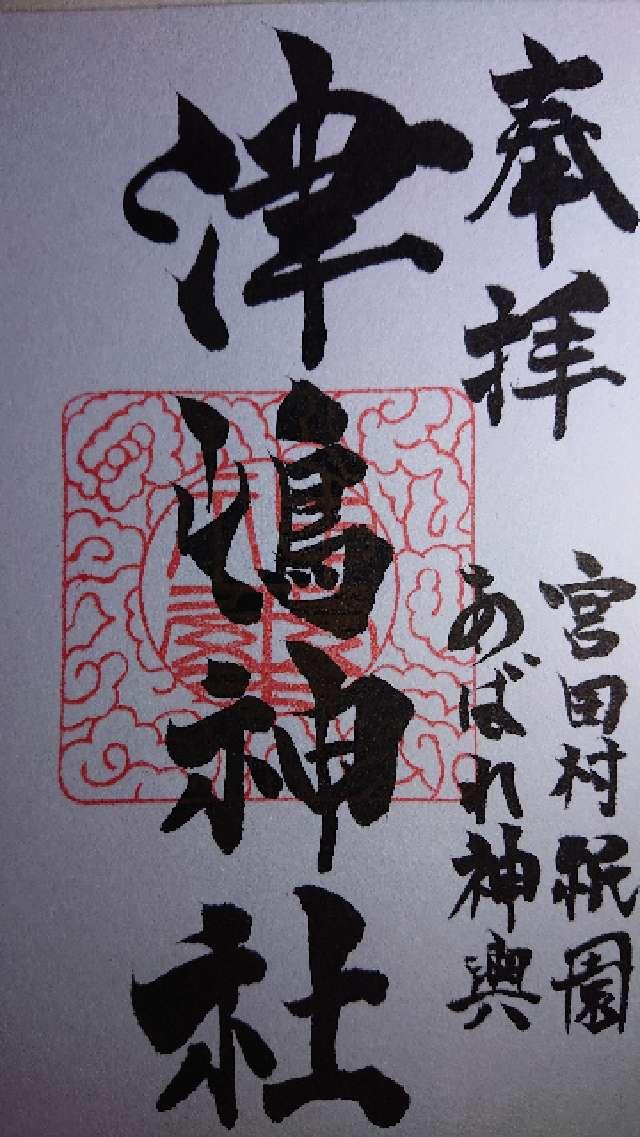 奉拝
宮田村祇園
あばれ神輿
津嶋神社